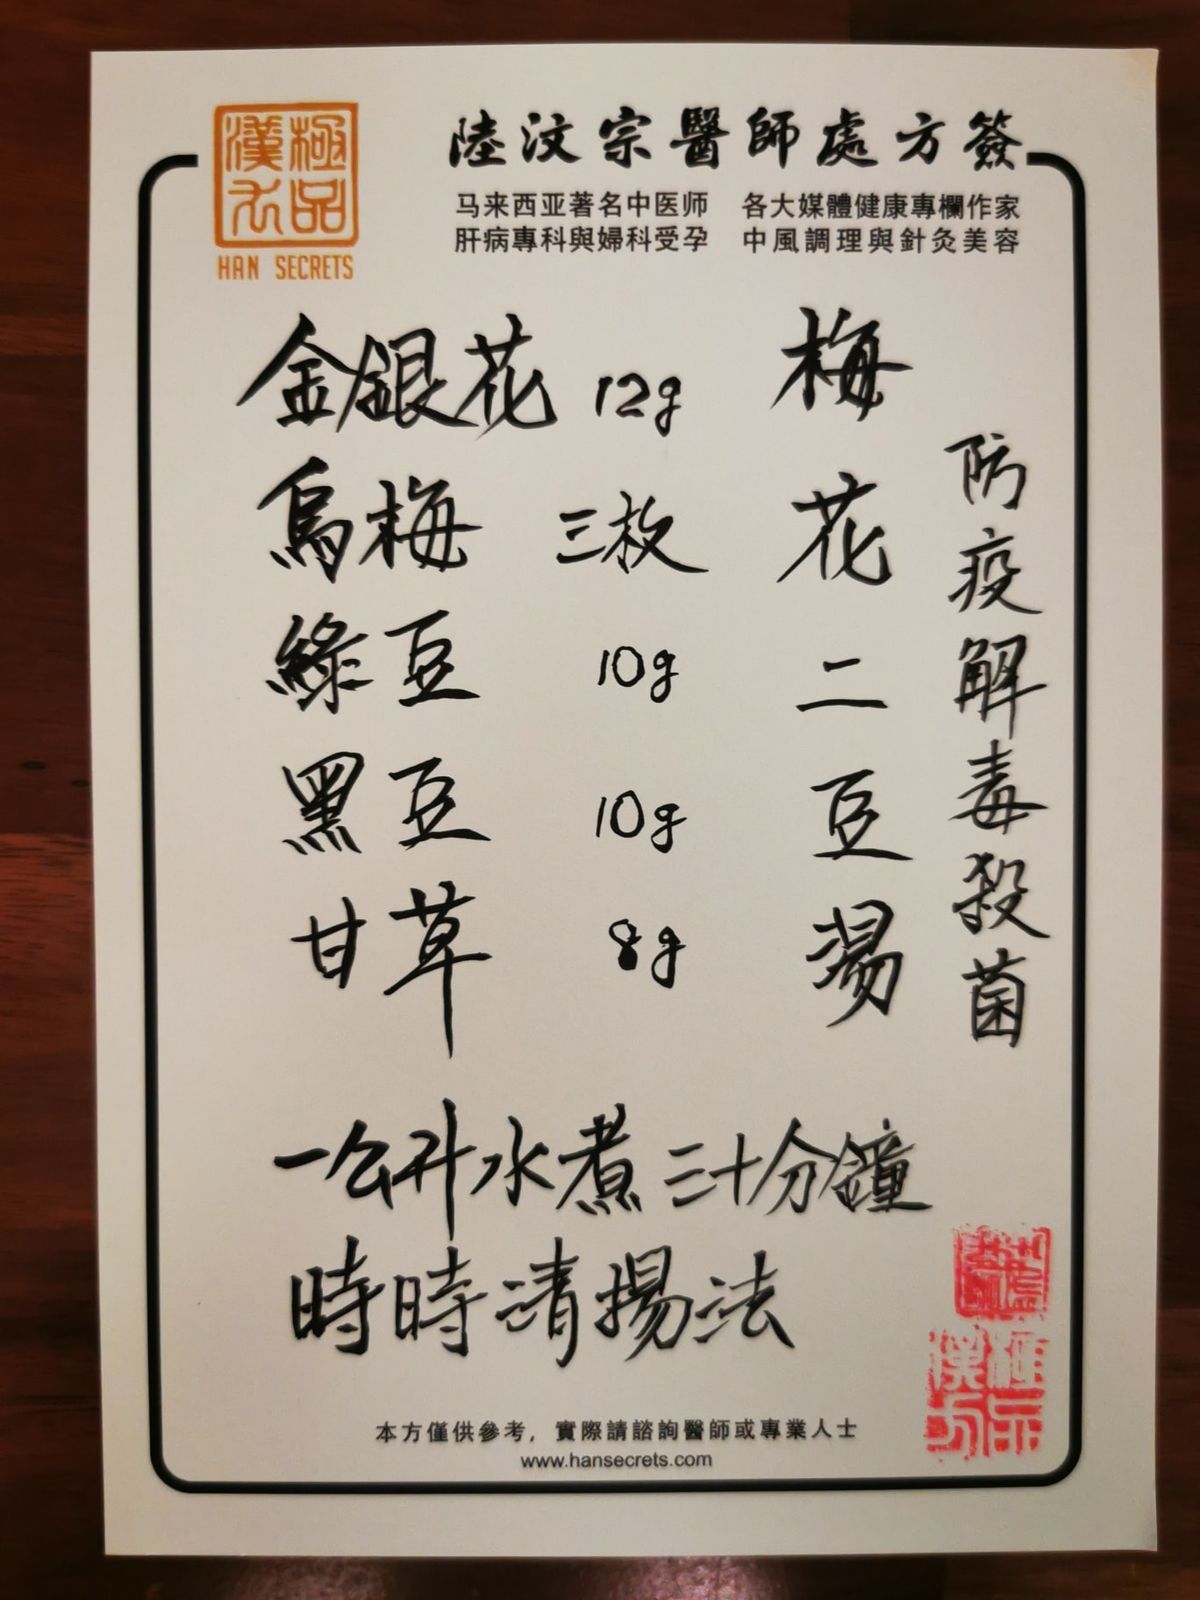 極品
漢方
HAN SECRETS
陸汶宗醫師處方簽
马来西亚著名中医师 各大媒體健康專欄作家
肝病專科與婦科受孕 中風調理與針灸美容
防疫解毒殺菌
梅花二豆湯
金銀花 12g
烏梅 三枚
綠豆 10g
黑豆 10g
甘草 8g
一公升水煮三十分鐘
時時清揚法
本方僅供參考，實際請諮詢醫師或專業人士
www.hansecrets.com
極品
漢方